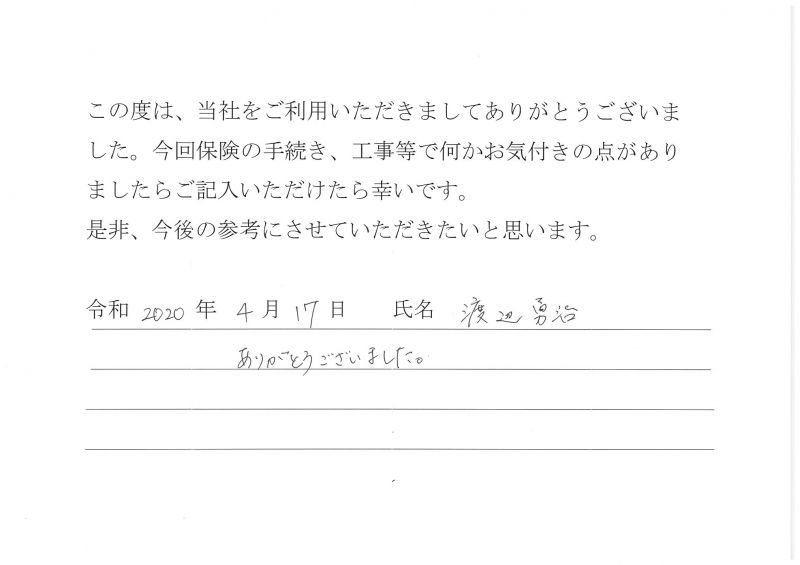 この度は、当社をご利用いただきましてありがとうございま
した。今回保険の手続き、工事等で何かお気付きの点があり
ましたらご記入いただけたら幸いです。
是非、今後の参考にさせていただきたいと思います。
令和 2020 年 4 月 17 日 氏名 渡辺勇治
ありがとうございました。